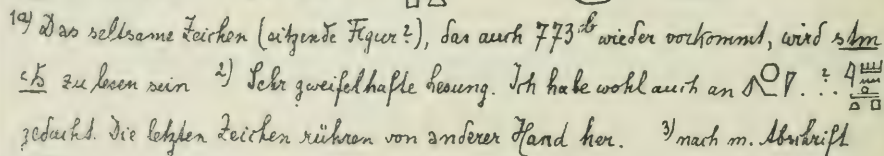 1a) Das seltsame Zeichen (sitzende Figur?), das auch 773b wieder vorkommt, wird stm
zu lesen sein 2) Sehr zweifelhafte Lesung. Ich habe wohl auch an
gedacht. Die letzten Zeichen rühren von anderer Hand her. 3) nach m. Abschrift